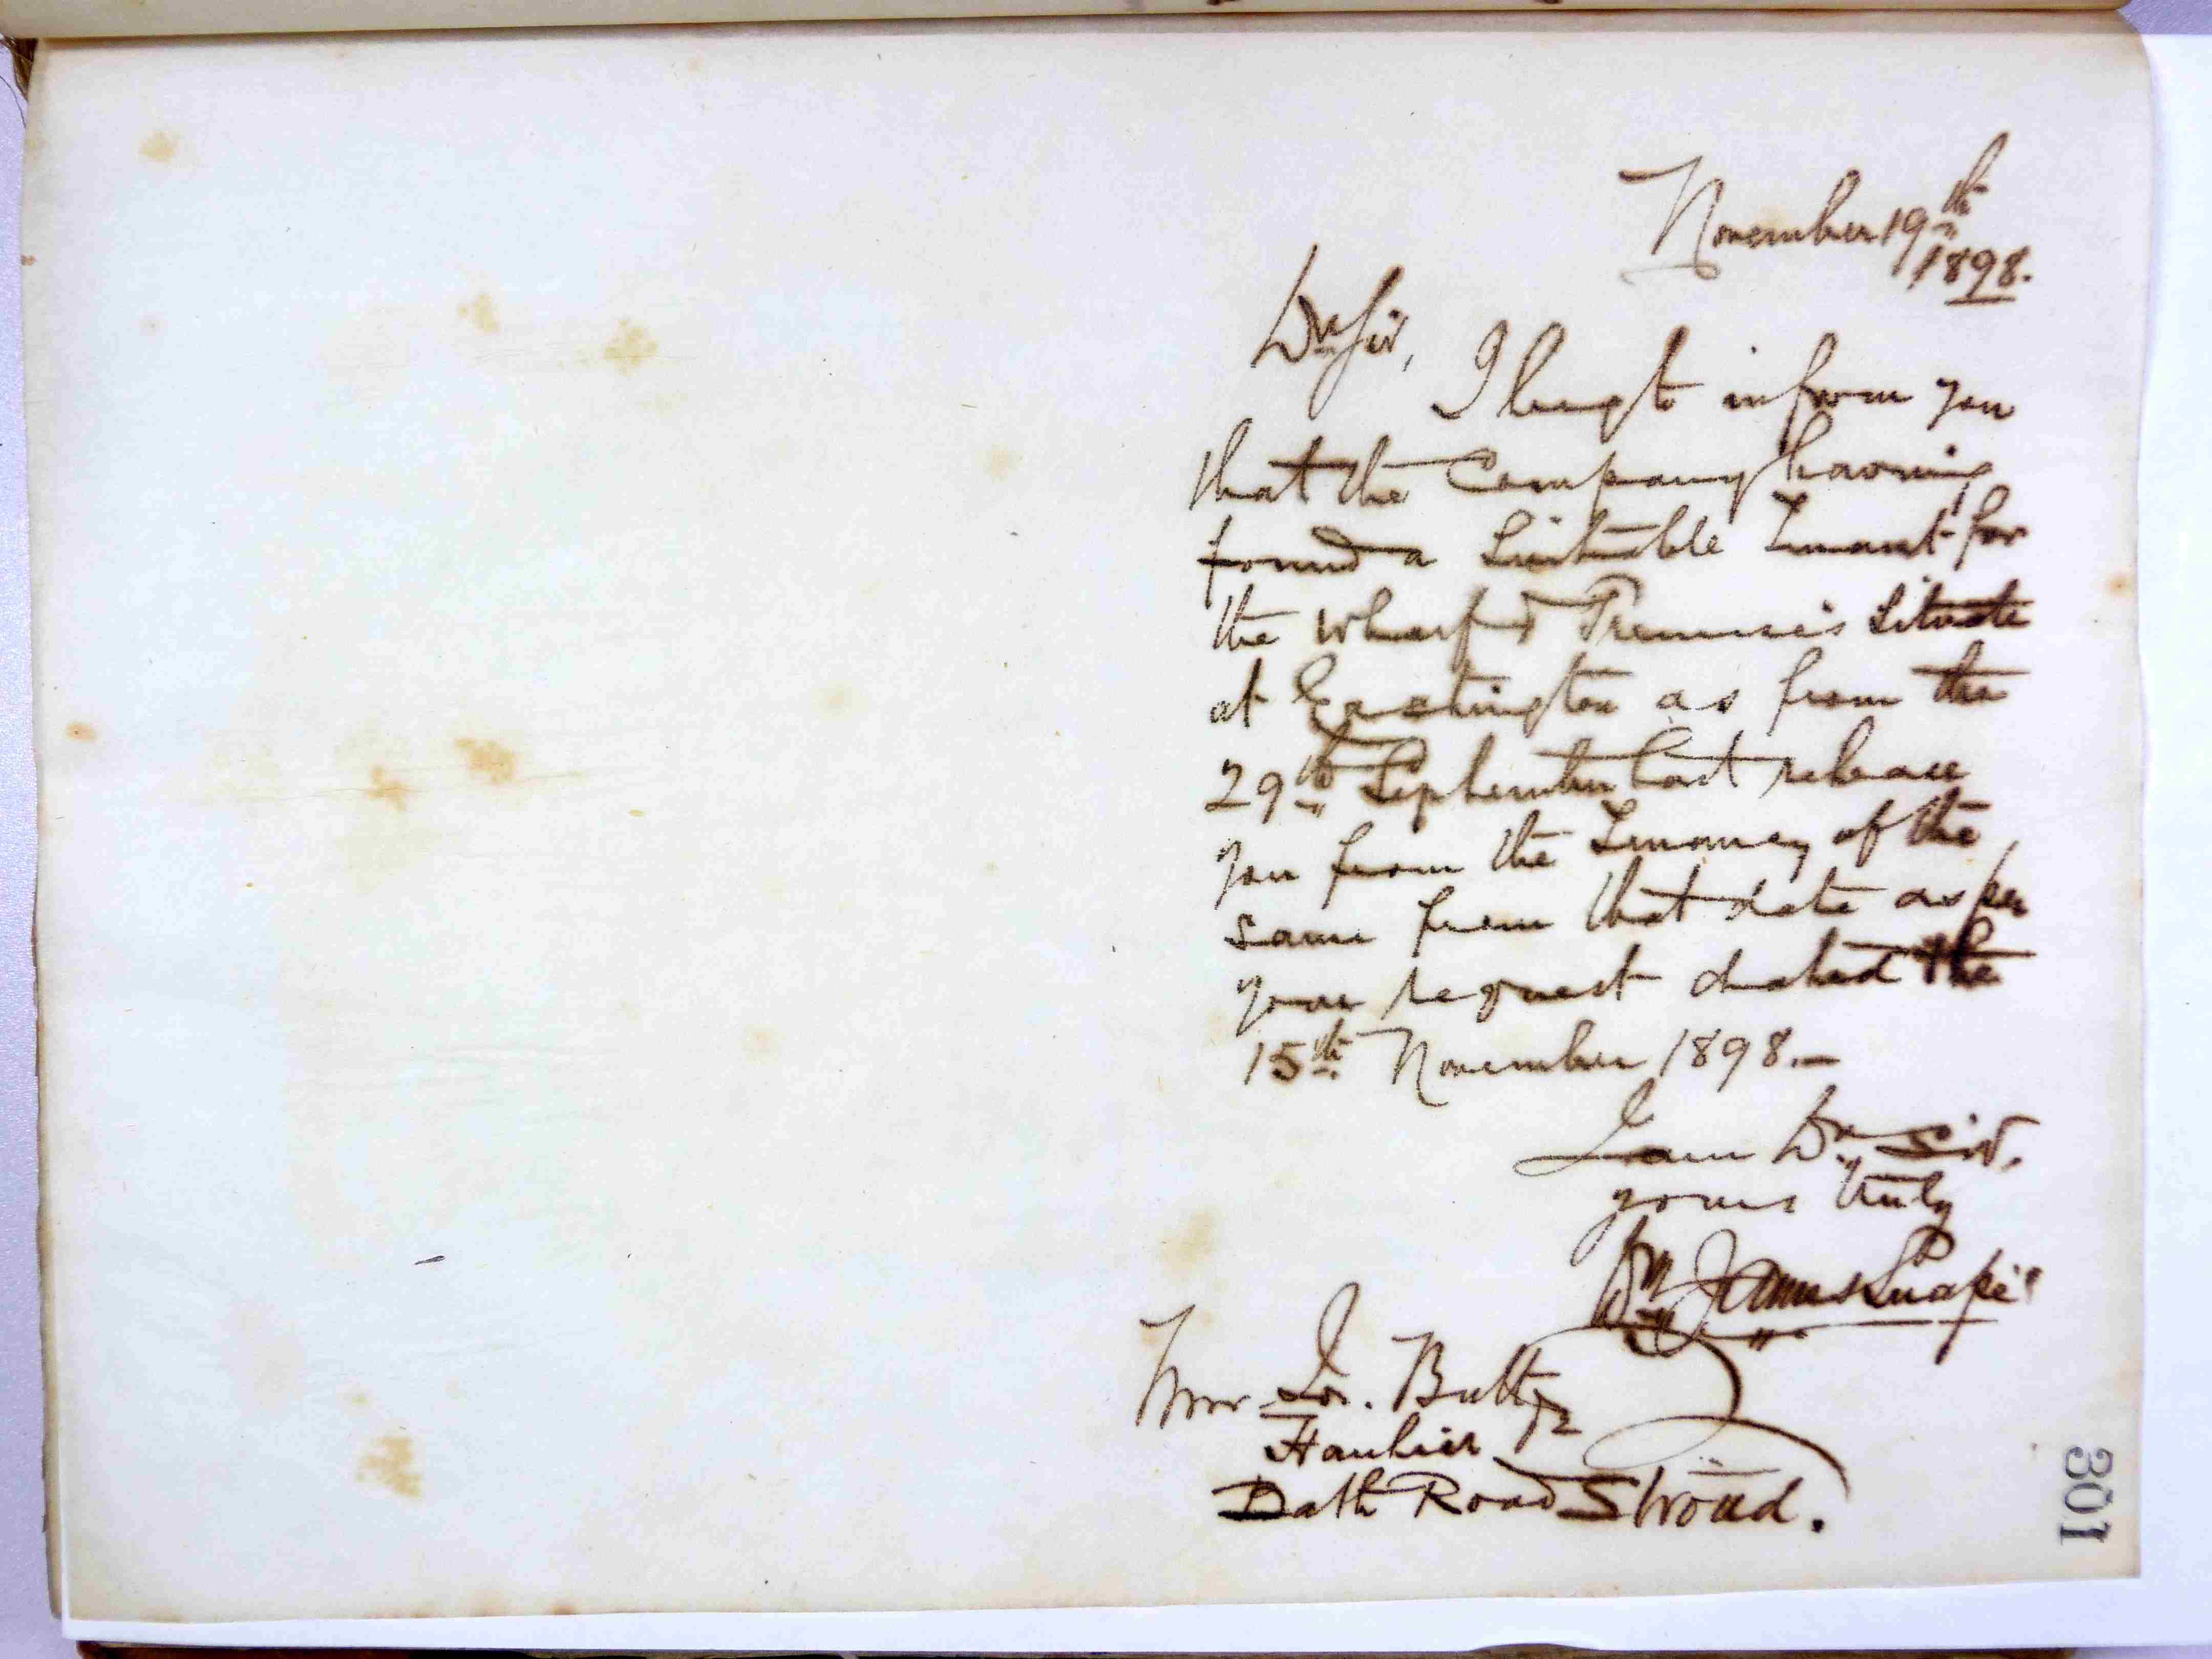 November 19th
1898.
Dr Sir,
I beg to inform you
that the Company having
found a Suitable Tenant for
the Wharf & Premises Situate
at Eastington as from the
29th September last release
you from the Tenancy of the
same from that date as per
your request dated the
15th November 1898.—
I am Dr Sir,
yours truly
Wm James Snape
Mr Jos. Butt
Haulier
Bath Road Stroud.
301